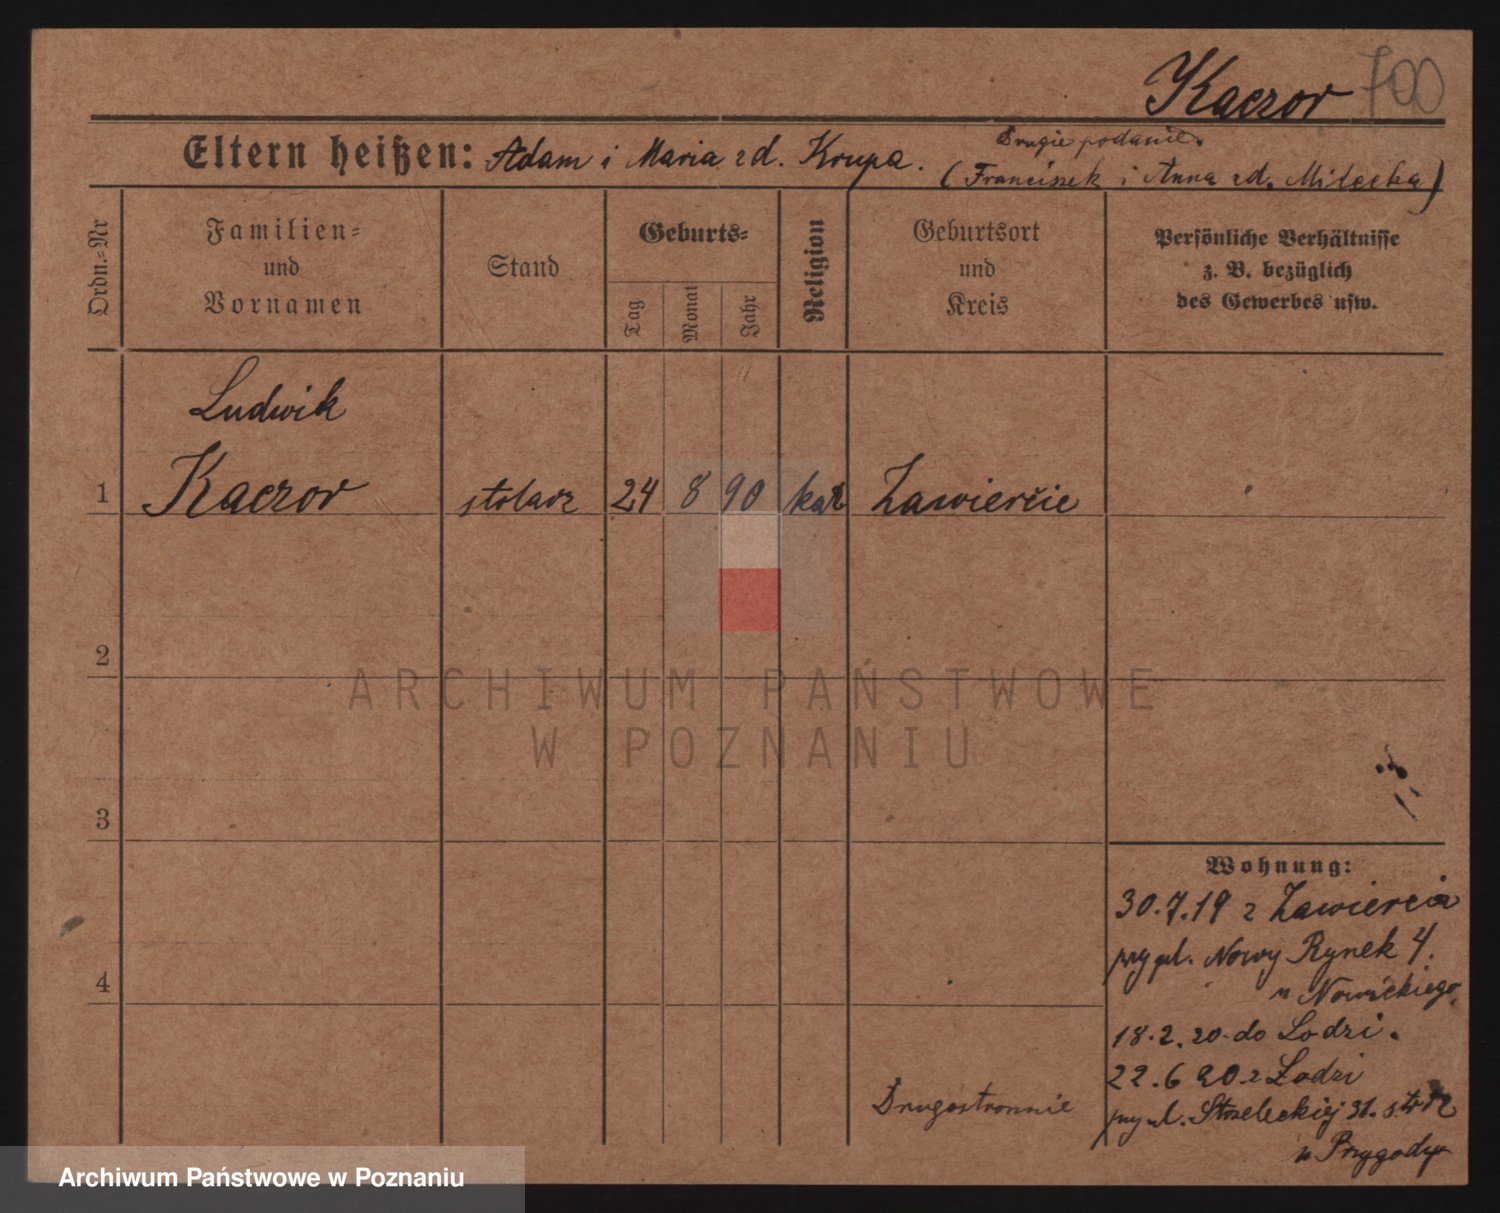 Kaczor 700
Eltern heißen: Adam i Maria zd. Krupa.
Drugie podanie.
(Franciszek i Anna zd. Milecka)
Ordn.=Nr
Familien=
und
Vornamen
Stand
Geburts=
Tag
Monat
Jahr
Religion
Geburtsort
und
Kreis
Persönliche Verhältnisse
z. B. bezüglich
des Gewerbes usw.
Ludwik
1 Kaczor stolarz 24 8 90 kat Zawiercie
2
3
4
ARCHIWUM PAŃSTWOWE
W POZNANIU
Wohnung:
30.7.19 z Zawiercia
przy ul. Nowy Rynek 4.
u Nowickiego
18.2.20 do Lodzi.
22.6 20 z Łodzi
przy ul. Strzeleckiej 31.
u Przygody
Drugostronnie
Archiwum Państwowe w Poznaniu